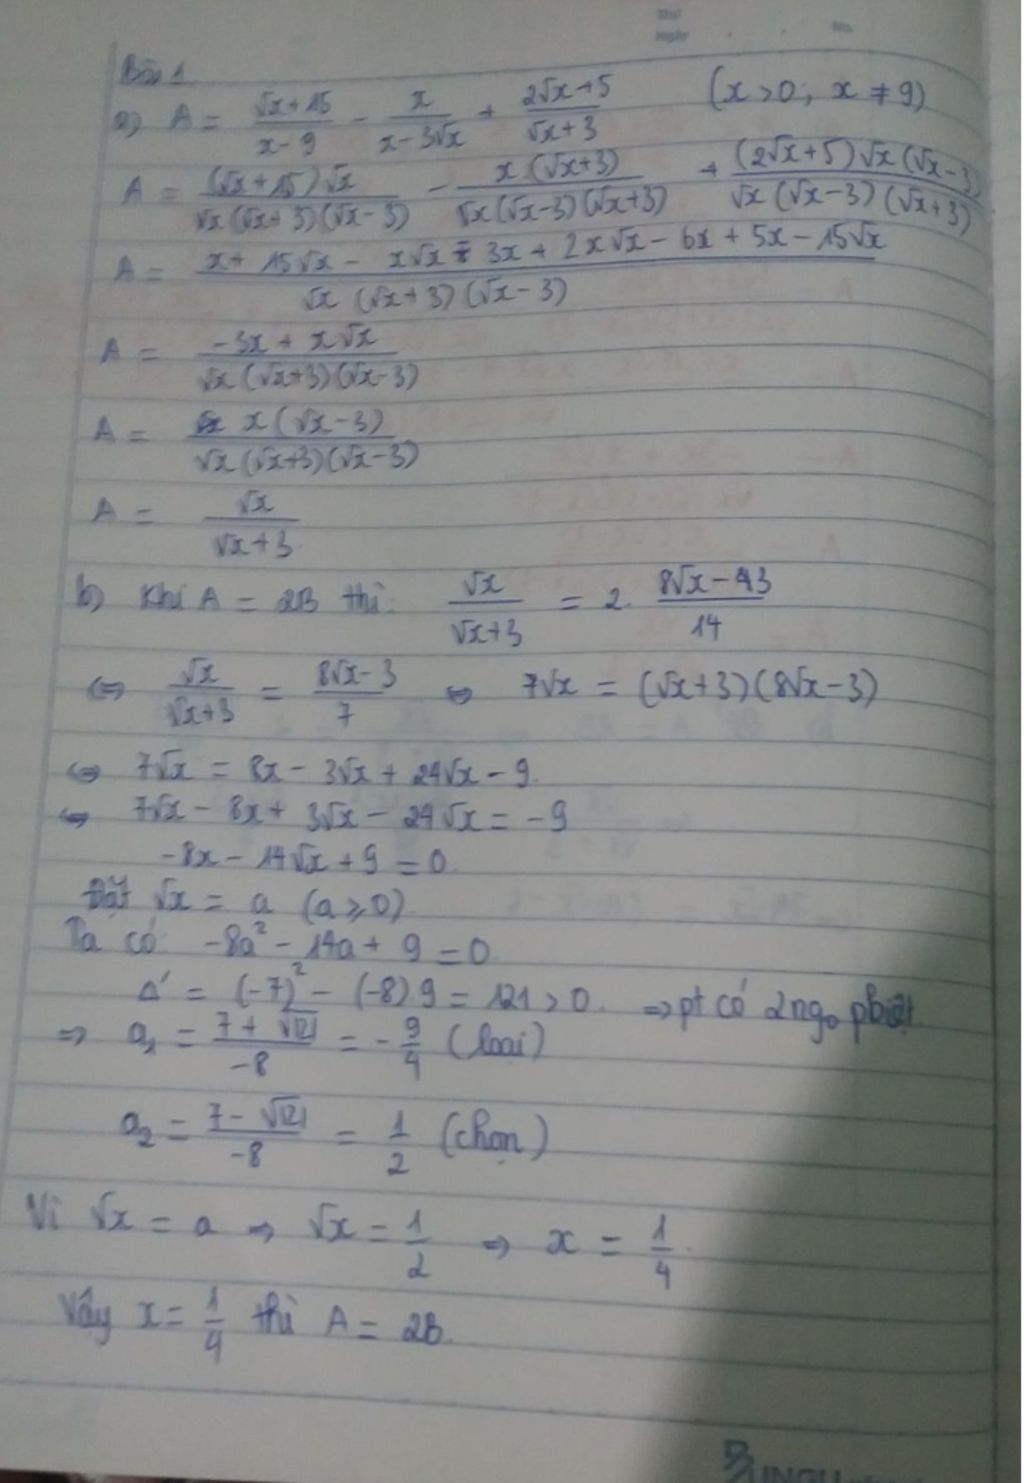 Thứ
Ngày
No.
Bài 1
a) A = (√x + 15)/(x - 9) - x/(x - 3√x) + (2√x + 5)/(√x + 3) (x > 0; x ≠ 9)
A = (√x + 15)√x/(√x(√x + 3)(√x - 3)) - x(√x + 3)/(√x(√x - 3)(√x + 3)) + (2√x + 5)√x(√x - 3)/(√x(√x - 3)(√x + 3))
A = (x + 15√x - x√x - 3x + 2x√x - 6x + 5x - 15√x)/(√x(√x + 3)(√x - 3))
A = (-3x + x√x)/(√x(√x + 3)(√x - 3))
A = x(√x - 3)/(√x(√x + 3)(√x - 3))
A = √x/(√x + 3)
b) Khi A = 2B thì: √x/(√x + 3) = 2. (8√x - 3)/14
⇔ √x/(√x + 3) = (8√x - 3)/7 ⇔ 7√x = (√x + 3)(8√x - 3)
⇔ 7√x = 8x - 3√x + 24√x - 9.
⇔ 7√x - 8x + 3√x - 24√x = -9
-8x - 14√x + 9 = 0.
Đặt √x = a (a ≥ 0)
Ta có -8a² - 14a + 9 = 0
Δ' = (-7)² - (-8).9 = 121 > 0. ⇒ pt có 2 ngo pbiệt
⇒ a₁ = (7 + √121)/-8 = -9/4 (loại)
a₂ = (7 - √121)/-8 = 1/2 (chọn)
Vì √x = a ⇒ √x = 1/2 ⇒ x = 1/4.
Vậy x = 1/4 thì A = 2B.